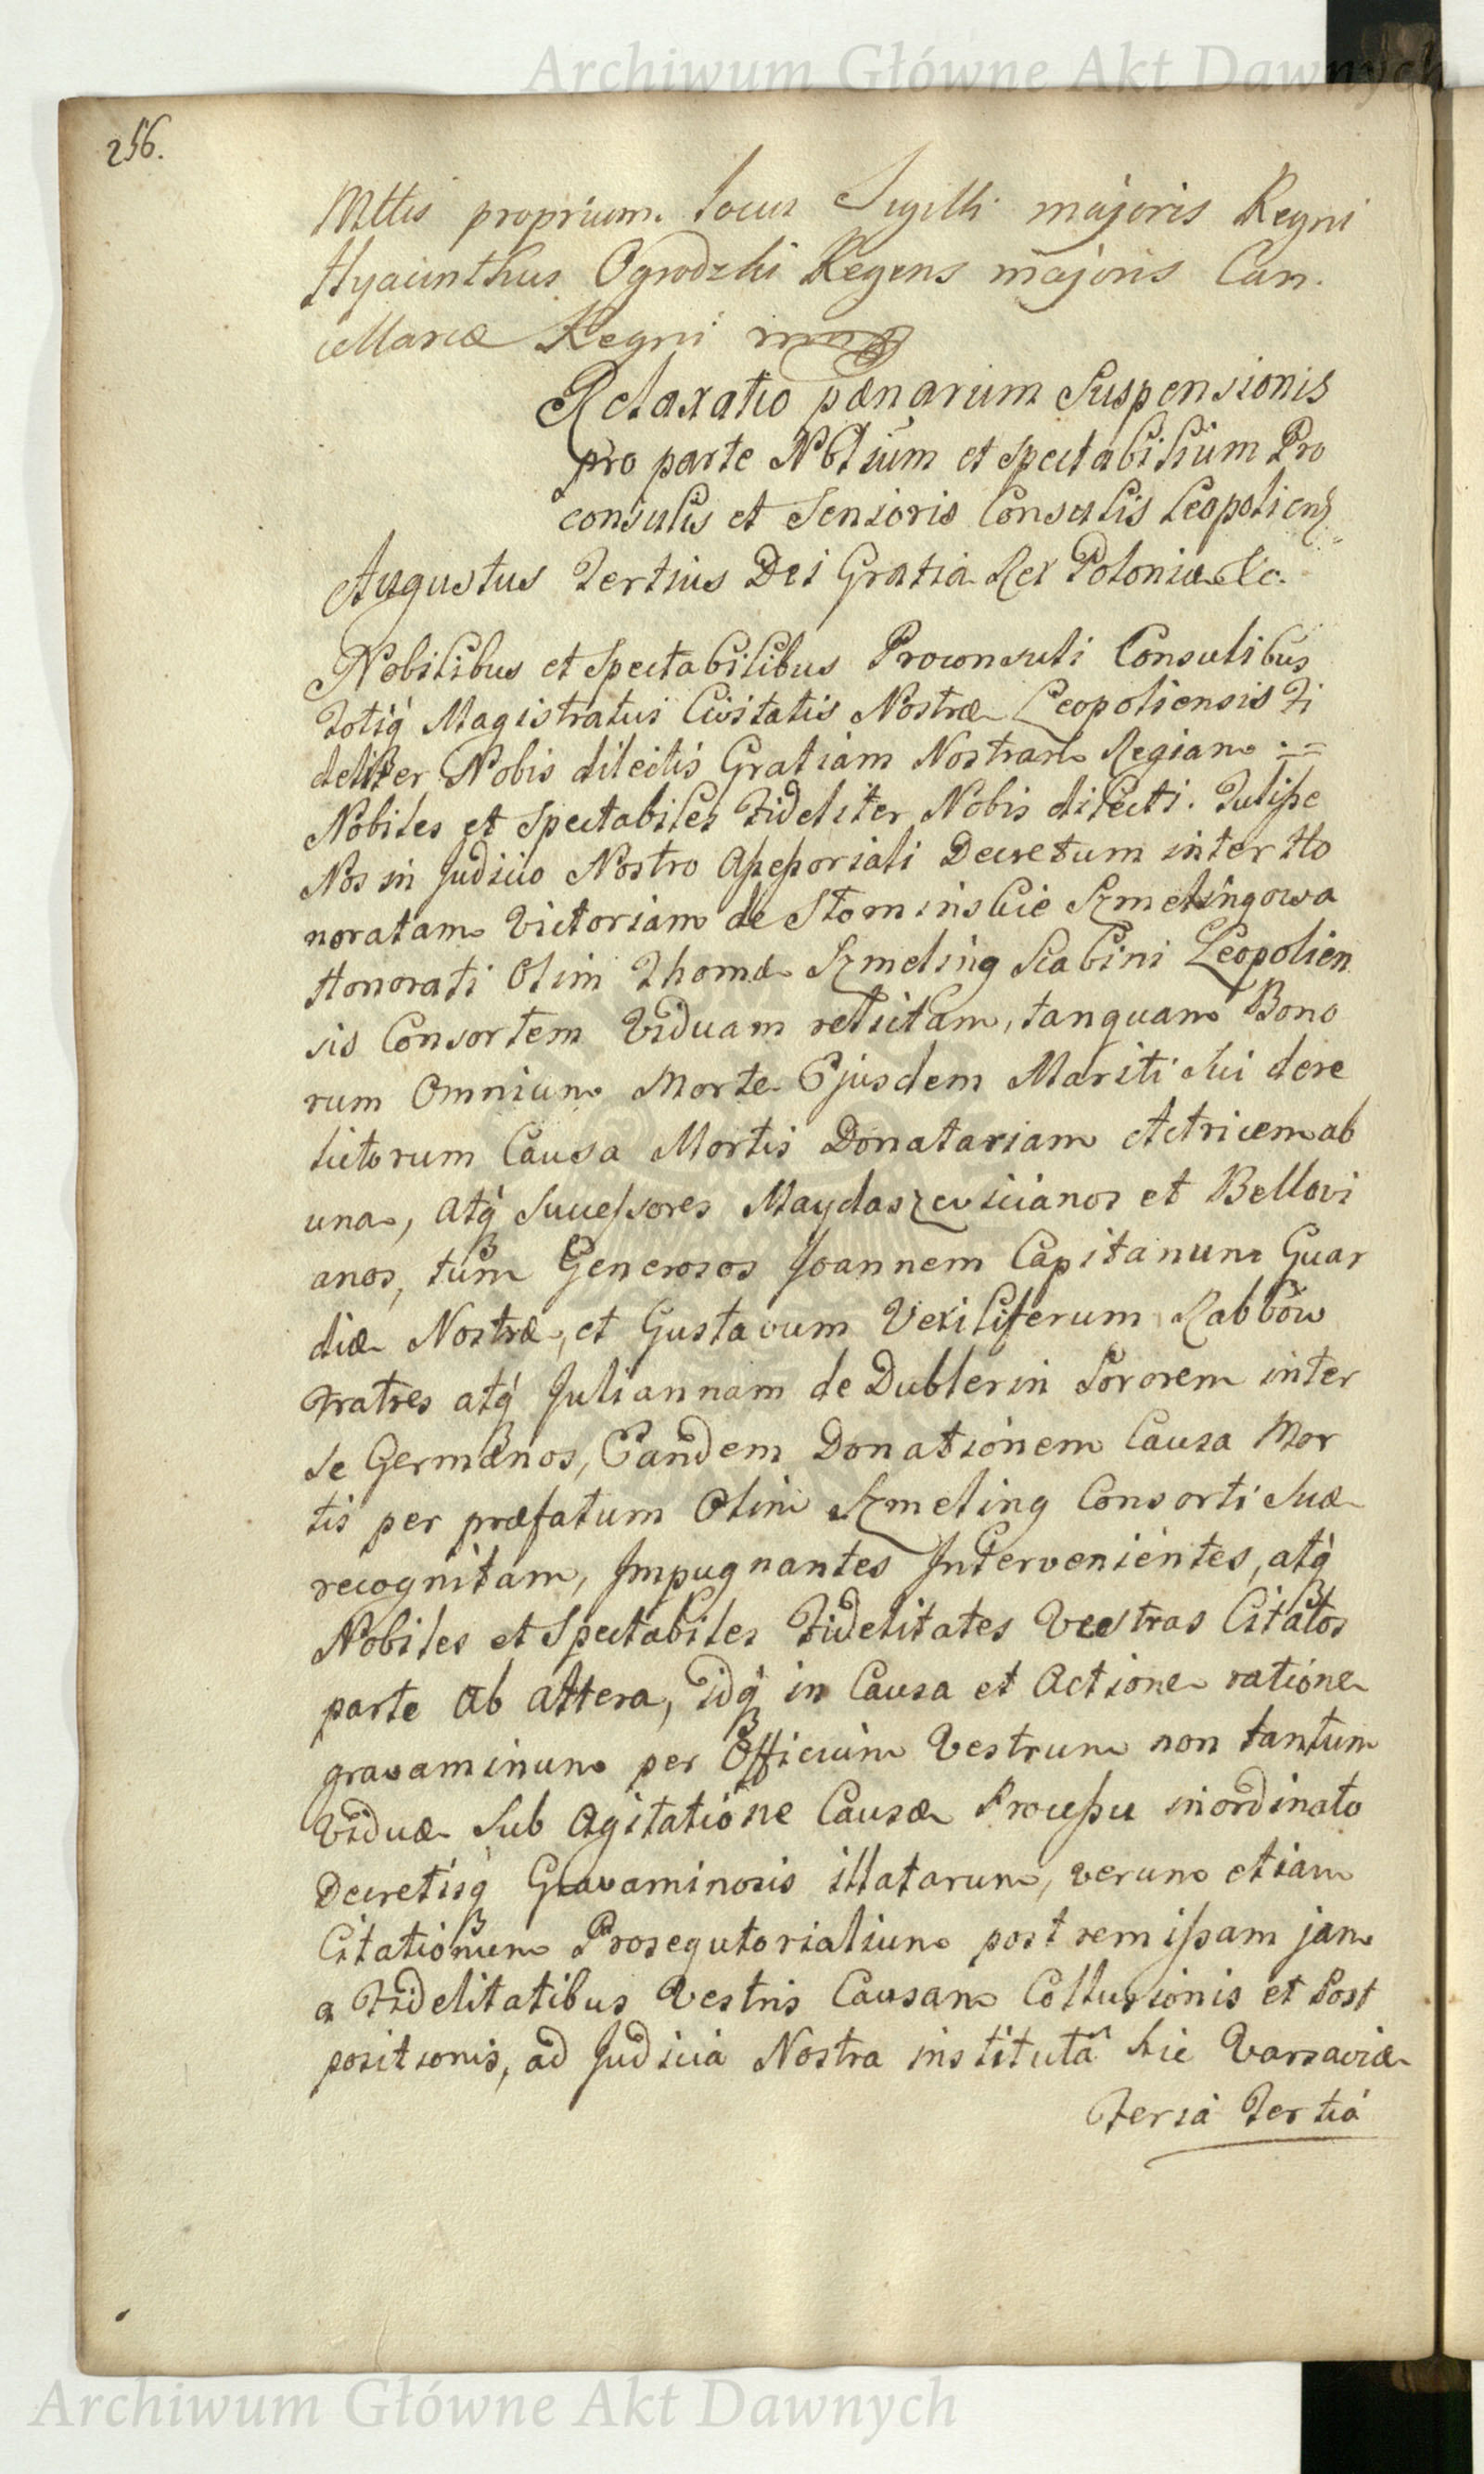 Archiwum Główne Akt Dawnych
256.
Mttis proprium. Locus Sigilli majoris Regni
Hyacinthus Ogrodzki Regens majoris Can
cellariæ Regni
Relaxatio pænarum Suspensionis
pro parte Nobilium et Spectabilium Pro
consulis et Senioris Consulis Leopoliens
Augustus Tertius Dei Gratia Rex Poloniæ &c.
Nobilibus et Spectabilibus Proconsuli Consulibus
Totiq Magistratui Civitatis Nostræ Leopoliensis Fi
deliter Nobis dilectis Gratiam Nostram Regiam
Nobiles et Spectabiles Fideliter Nobis dilecti. Tulisse
Nos in Judicio Nostro Assessoriali Decretum inter Ho
noratam Victoriam de Słominskie Szmelingowa
Honorati Olim Thomæ Szmeling Scabini Leopolien
sis Consortem Viduam relictam, tanquam Bono
rum Omnium Morte Ejusdem Mariti Sui dere
lictorum Causa Mortis Donatariam Actricem ab
una, atq Successores Maydaszewicianos et Bellovi
anos, tum Generosos Joannem Capitanum Guar
diæ Nostræ, et Gustavum Vexiliferum Rabbow
Fratres atq Juliannam de Dublerin Sororem inter
se Germanos, Eandem Donationem Causa Mor
tis per præfatum Olim Szmeling Consorti Suæ
recognitam, Impugnantes Intervenientes, atq
Nobiles et Spectabiles Fidelitates Vestras Citatos
parte ab altera, idq in Causa et Actione ratione
gravaminum per Officium Vestrum non tantum
Viduæ Sub Agitatione Causæ Processu inordinato
Decretisq Gravaminosis illatarum, verum etiam
Citationum Prosequtorialium post remissam jam
a Fidelitatibus Vestris Causam Collusionis et Post
positionis, ad Judicia Nostra instituta hic Varsaviæ
Feria Tertia
Archiwum Główne Akt Dawnych